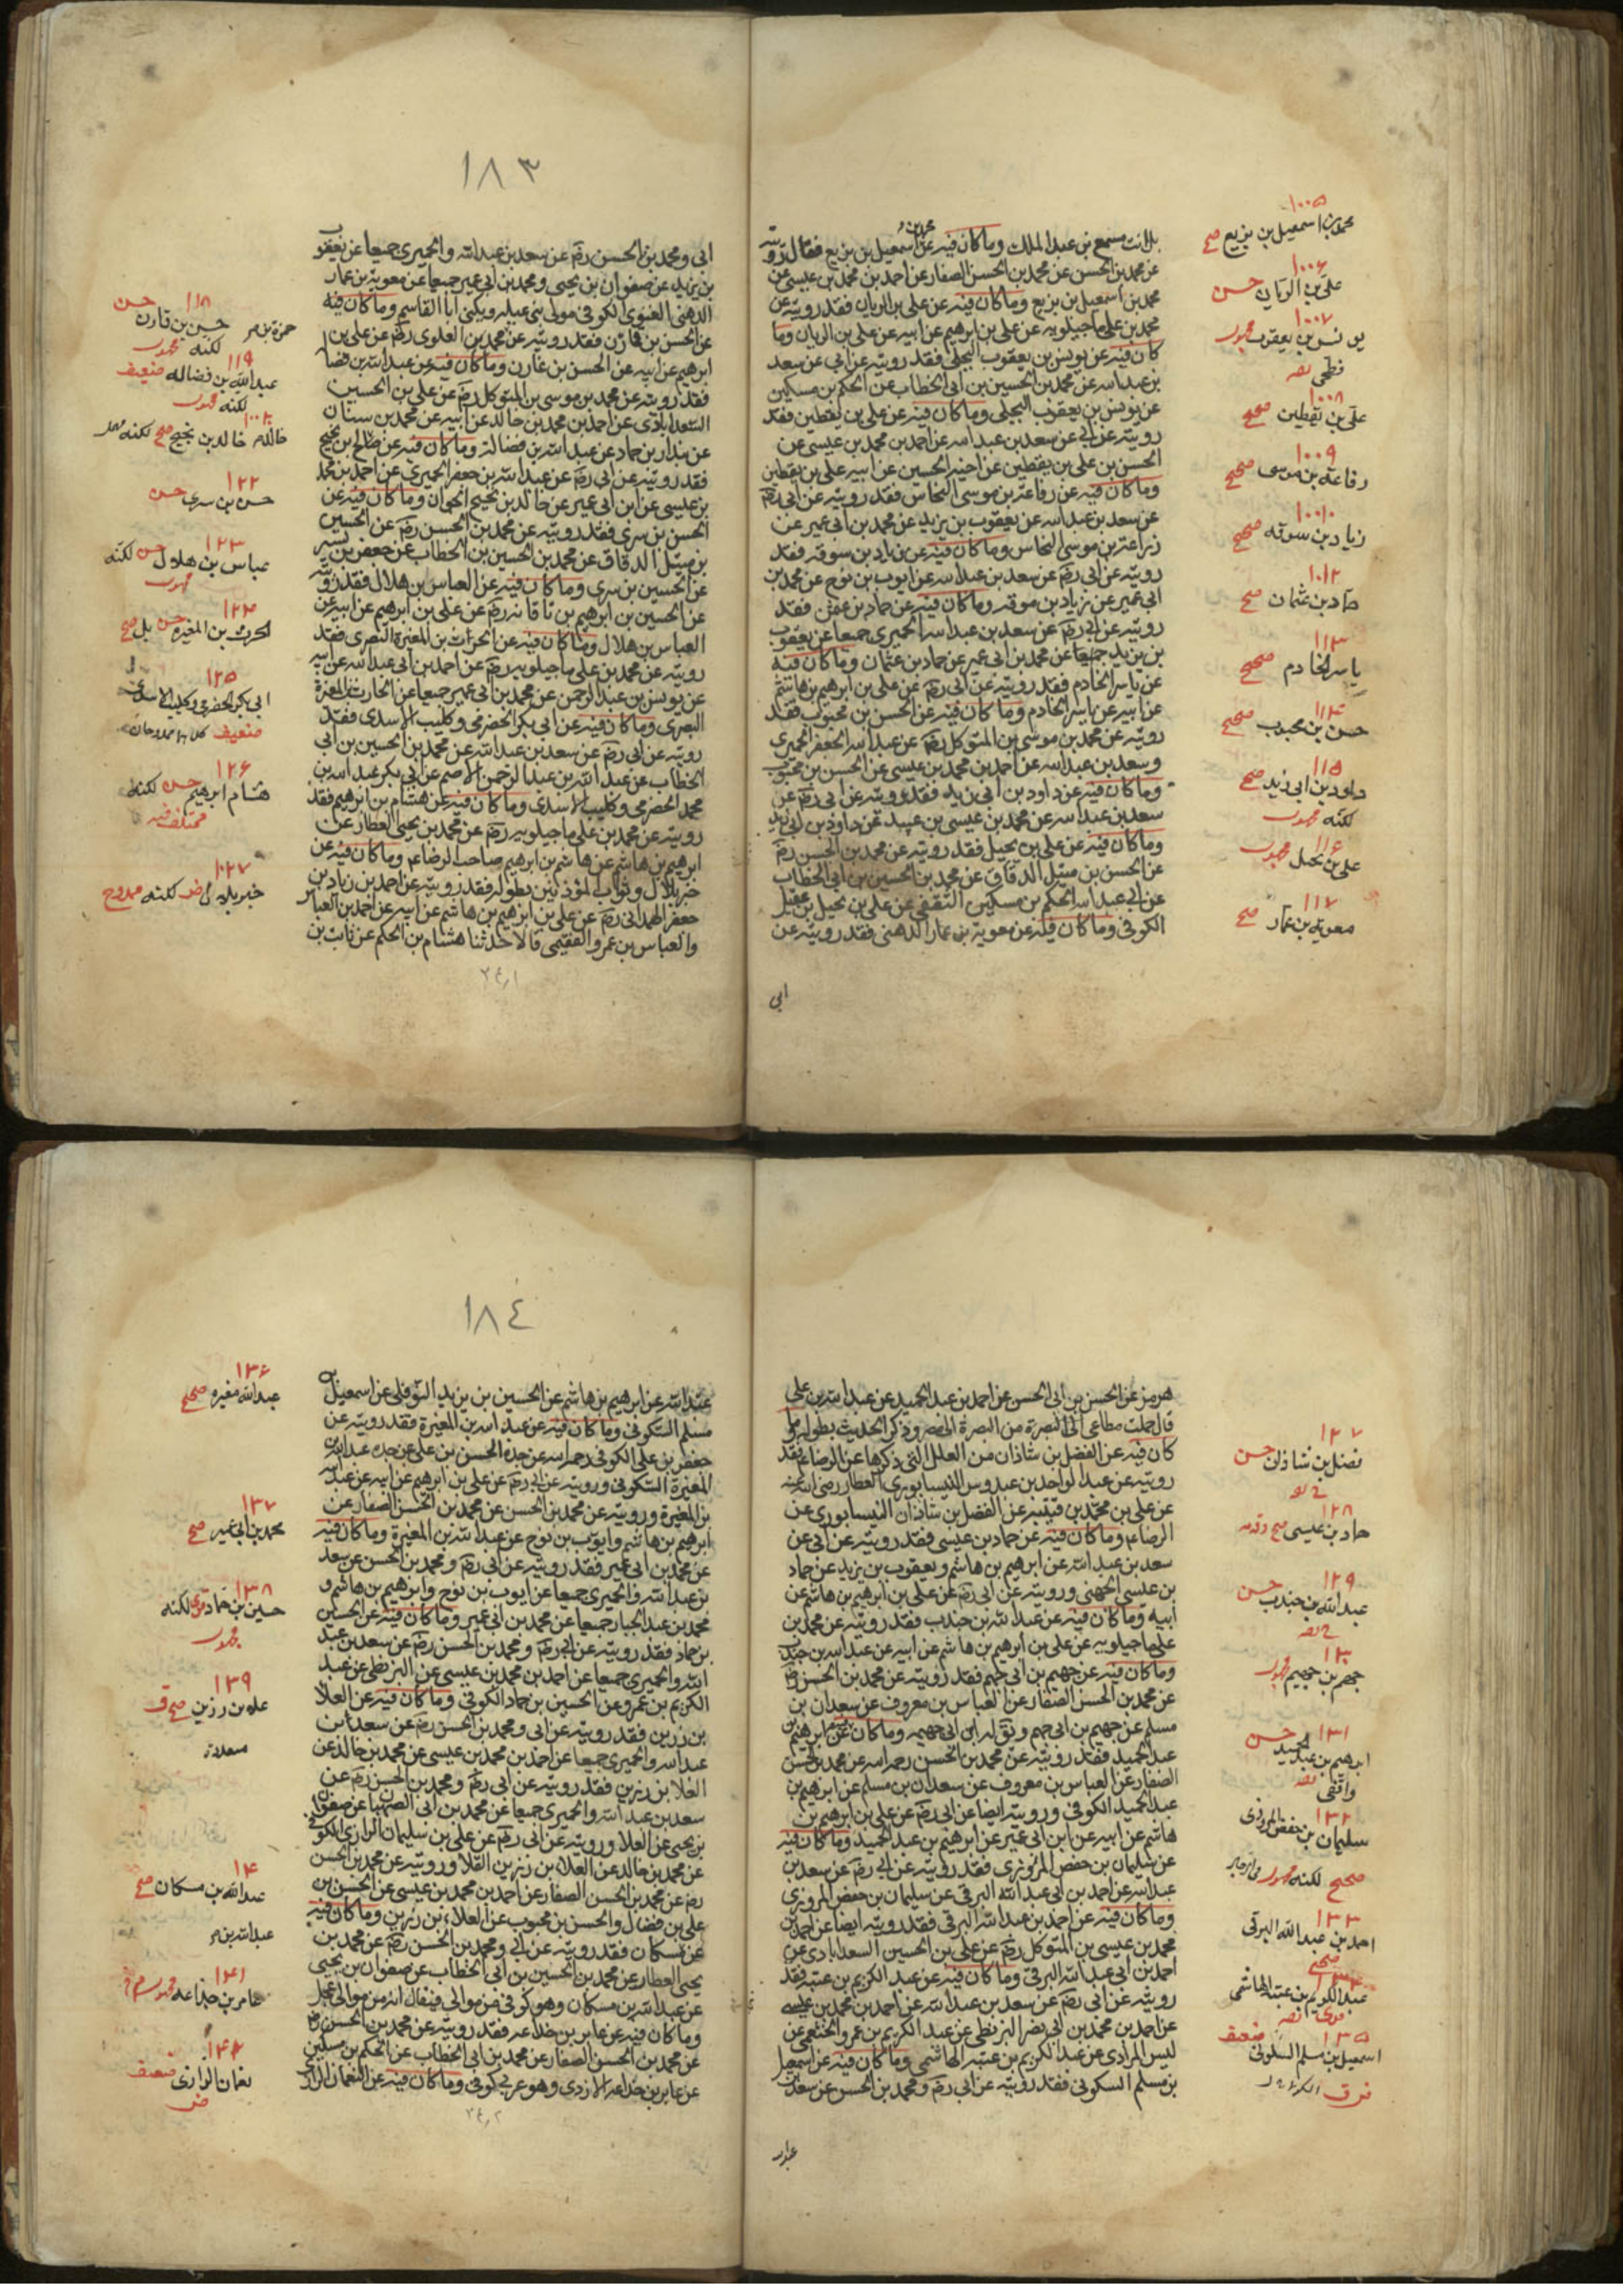 ١٠٠٥
محمد بن اسمعيل بن بزيع صح
١٠٠٦
علي بن الريان حسن
١٠٠٧
يونس بن يعقوب
فطحي ثقه
١٠٠٨
علي بن يقطين صحيح
١٠٠٩
رفاعة بن موسى صحيح
١٠٠١٠
زياد بن سوقه صحيح
١٠١٢
حماد بن عثمان صح
١١٣
ياسر الخادم صحيح
١١٤
حسن بن محبوب صحيح
١١٥
داود بن ابي زيد صح
لكنه مجهول
١١٦
علي بن بجيل مجهول
١١٧
معوية بن عمار صح
مسمع بن عبد الملك وما كان فيه عن محمد بن اسمعيل بن بزيع فقد رويته
عن محمد بن الحسن عن محمد بن الحسن الصفار عن احمد بن محمد بن عيسى عن
محمد بن اسمعيل بن بزيع وما كان فيه عن علي بن الريان فقد رويته عن
محمد بن علي ماجيلويه عن علي بن ابرهيم عن ابيه عن علي بن الريان وما
كان فيه عن يونس بن يعقوب البجلي فقد رويته عن ابي عن سعد
بن عبد الله عن محمد بن الحسين بن ابي الخطاب عن الحكم بن مسكين
عن يونس بن يعقوب البجلي وما كان فيه عن علي بن يقطين فقد
رويته عن ابي عن سعد بن عبد الله عن احمد بن محمد بن عيسى عن
الحسن بن علي بن يقطين عن اخيه الحسين عن ابيه علي بن يقطين
وما كان فيه عن رفاعة بن موسى النخاس فقد رويته عن ابي رضه
عن سعد بن عبد الله عن يعقوب بن يزيد عن محمد بن ابي عمير عن
بن موسى النخاس وما كان فيه عن زياد بن سوقه فقد
رويته عن ابي رضه عن سعد بن عبد الله عن ايوب بن نوح عن محمد بن
ابي عمير عن زياد بن سوقه وما كان فيه عن حماد بن عثمن فقد
رويته عن ابي رضه عن سعد بن عبد الله الحميري جميعا عن يعقوب
بن يزيد جميعا عن محمد بن ابي عمير عن حماد بن عثمان وما كان فيه
عن ياسر الخادم فقد رويته عن ابي رضه عن علي بن ابرهيم بن هاشم
عن ابيه عن ياسر الخادم وما كان فيه عن الحسن بن محبوب فقد
رويته عن محمد بن موسى بن المتوكل رضه عن عبد الله الجعفر الحميري
وسعد بن عبد الله عن احمد بن محمد بن عيسى عن الحسن بن محبوب
وما كان فيه عن داود بن ابي زيد فقد رويته عن ابي رضه عن
سعد بن عبد الله عن محمد بن عيسى بن عبيد عن داود بن ابي زيد
وما كان فيه عن علي بن بجيل فقد رويته عن محمد بن الحسن رضه
عن الحسن بن متيل الدقاق عن محمد بن الحسين بن ابي الخطاب
عن ابي عبد الله الحكم بن مسكين الثقفي عن علي بن بجيل بن عقيل
الكوفي وما كان فيه عن معوية بن عمار الدهني فقد رويته عن
ابي
١٨٣
ابي ومحمد بن الحسن رضه عن سعد بن عبد الله والحميري جميعا عن يعقوب
بن يزيد عن صفوان بن يحيى ومحمد بن ابي عمير جميعا عن معوية بن عمار
الدهني الغنوي الكوفي مولى بني ويكنى ابا القاسم وما كان فيه
عن الحسن بن قارن فقد رويته عن محمد بن العلوي رضه عن علي بن
ابرهيم عن ابيه عن الحسن بن قارن وما كان فيه عن عبد الله بن فضا
فقد رويته عن محمد بن موسى بن المتوكل رضه عن علي بن الحسين
السعدابادي عن احمد بن محمد بن خالد عن ابيه عن محمد بن سنان
عن بندار بن حماد عن عبد الله بن فضالة وما كان فيه عن خالد بن نجيح
فقد رويته عن ابي رضه عن عبد الله بن جعفر الحميري عن احمد بن محمد
بن عيسى عن ابن ابي عمير عن خالد بن نجيح الجوان وما كان فيه عن
الحسن بن سري فقد رويته عن محمد بن الحسن رضه عن الحسين
بن متيل الدقاق عن محمد بن الحسين بن الخطاب عن جعفر بن بشير
عن الحسين بن سري وما كان فيه عن العباس بن هلال فقد رويته
عن الحسين بن ابرهيم بن رضه عن علي بن ابرهيم عن ابيه عن
العباس بن هلال وما كان فيه عن الحراث بن المغيرة النصري فقد
رويته عن محمد بن علي ماجيلويه رضه عن احمد بن ابي عبد الله عن ابيه
عن يونس بن عبد الرحمن عن محمد بن ابي عمير جميعا عن الحارث بن المغيرة
البصري وما كان فيه عن ابي بكر الحضرمي وكليب الاسدي فقد
رويته عن ابي رضه عن سعد بن عبد الله عن محمد بن الحسين بن ابي
الخطاب عن عبد الله بن عبد الرحمن الاصم عن ابي بكر عبد الله بن
محمد الحضرمي وكليب الاسدي وما كان فيه عن هشام بن ابرهيم فقد
رويته عن محمد بن علي ماجيلويه رضه عن محمد بن يحيى العطار عن
ابرهيم بن هاشم عن هاشم بن ابرهيم صاحب الرضا عم وما كان فيه عن
خبر بلال وثواب المؤذنين بطوله فقد رويته عن احمد بن زياد بن
جعفر الهمداني رضه عن علي بن ابرهيم بن هاشم عن ابيه عن احمد بن العباس
والعباس بن عمرو الفقيمي قالا حدثنا هشام بن الحكم عن ثابت بن
١١٨
حسن بن قارن حسن
لكنه مجهول
١١٩
عبد الله بن فضاله ضعيف
لكنه مجهول
خالد بن نجيح صح
١٢٢
حسن بن سري حسن
١٢٣
عباس بن هلال حسن لكنه
مجهول
١٢٤
الحرث بن المغيره حسن بل صح
١٢٥
ابي بكر الحضرمي وكليب الاسدي
ضعيف
١٢٦
هشام ابرهيم حسن لكنه
مختلف فيه
١٠٢٧
خبر بلال لكنه ممدوح
١٢٧
فضل بن شاذان حسن
١٢٨
حماد بن عيسى صح
١٢٩
عبد الله بن جندب حسن
١٣٠
جهم بن جهيم مجهول
١٣١
ابرهيم بن عبد الحميد حسن
واقفي ثقه
١٣٢
سليمان بن حفص المروزي
صحيح لكنه مجهول
١٣٣
احمد بن عبد الله البرقي
صحيح
عبد الكريم بن عتبة الهاشمي
١٣٥
اسمعيل بن مسلم السكوني ضعيف
هرمز عن الحسن بن ابي الحسن عن احمد بن عبد الحميد عن عبد الله بن علي
قال حملت متاعي الى البصرة من البصرة الى مصر وذكر الحديث بطوله وما
كان فيه عن الفضل بن شاذان من العلل التي ذكرها عن الرضا عم فقد
رويته عن عبد الواحد بن عبدوس النيسابوري العطار رضي الله عنه
عن علي بن محمد بن قتيبه عن الفضل بن شاذان النيسابوري عن
الرضا عم وما كان فيه عن حماد بن عيسى فقد رويته عن ابي عن
سعد بن عبد الله عن ابرهيم بن هاشم ويعقوب بن يزيد عن حماد
بن عيسى الجهني ورويته عن ابي رضه عن علي بن ابرهيم بن هاشم عن
ابيه وما كان فيه عن عبد الله بن جندب فقد رويته عن محمد بن
علي ماجيلويه عن علي بن ابرهيم بن هاشم عن ابيه عن عبد الله بن جندب
وما كان فيه عن جهيم بن ابي جهم فقد رويته عن محمد بن الحسن رضه
عن محمد بن الحسن الصفار عن العباس بن معروف عن سعدان بن
مسلم عن جهيم بن ابي جهم ويق له ابن ابي جهيمه وما كان عن ابرهيم بن
عبد الحميد فقد رويته عن محمد بن الحسن رحمه الله عن محمد بن الحسن
الصفار عن العباس بن معروف عن سعدان بن مسلم عن ابرهيم بن
عبد الحميد الكوفي ورويته ايضا عن ابي رضه عن علي بن ابرهيم بن
هاشم عن ابيه عن ابن ابي عمير عن ابرهيم بن عبد الحميد وما كان فيه
عن سليمان بن حفص المروزي فقد رويته عن ابي رضه عن سعد بن
عبد الله عن احمد بن ابي عبد الله البرقي عن سليمان بن حفص المروزي
وما كان فيه عن احمد بن عبد الله البرقي فقد رويته ايضا عن احمد بن
محمد بن عيسى بن المتوكل رضه عن علي بن الحسين السعدابادي عن
احمد بن ابي عبد الله البرقي وما كان فيه عن عبد الكريم بن عتبه فقد
رويته عن ابي رضه عن سعد بن عبد الله عن احمد بن محمد بن عيسى
عن احمد بن محمد بن ابي نصر البزنطي عن عبد الكريم بن عمرو الخثعمي عن
ليس المرادي عن عبد الكريم بن عتبه الهاشمي وما كان فيه عن اسمعيل
بن مسلم السكوني فقد رويته عن ابي رضه ومحمد بن الحسن عن سعد بن
١٨٤
عبد الله عن ابرهيم بن هاشم عن الحسين بن يزيد النوفلي عن اسمعيل بن
مسلم السكوني وما كان فيه عن عبد الله بن المغيرة فقد رويته عن
جعفر بن علي الكوفي رحمه الله عن جده الحسن بن علي عن جده عبد الله بن
المغيرة السكوني ورويته عن ابي رضه عن علي بن ابرهيم عن ابيه عن عبد الله
بن المغيرة ورويته عن محمد بن الحسن عن محمد بن الحسن الصفار عن
ابرهيم بن هاشم وايوب بن نوح عن عبد الله بن المغيرة وما كان فيه
عن محمد بن ابي عمير فقد رويته عن ابي رضه ومحمد بن الحسن عن سعد
بن عبد الله والحميري جميعا عن ايوب بن نوح وابرهيم بن هاشم و
محمد بن عبد الجبار جميعا عن محمد بن ابي عمير وما كان فيه عن الحسين
بن حماد فقد رويته عن ابي رضه ومحمد بن الحسن رضه عن سعد بن عبد
الله والحميري جميعا عن احمد بن محمد بن عيسى عن البزنطي عن عبد
الكريم بن عمرو عن الحسين بن حماد الكوفي وما كان فيه عن العلا
بن رزين فقد رويته عن ابي ومحمد بن الحسن رضه عن سعد بن
عبد الله والحميري جميعا عن احمد بن محمد بن عيسى عن محمد بن خالد عن
العلا بن رزين فقد رويته عن ابي رضه ومحمد بن الحسن رضه عن
سعد بن عبد الله والحميري جميعا عن محمد بن ابي الصهبان عن صفوان
بن يحيى عن العلا ورويته عن ابي رضه عن علي بن سليمان الرازي الكوفي
عن محمد بن خالد عن العلاء بن رزين القلا ورويته عن محمد بن الحسن
رضه عن محمد بن الحسن الصفار عن احمد بن محمد بن عيسى عن الحسن بن
علي بن فضال والحسن بن محبوب عن العلاء بن رزين وما كان فيه
عن مسكان فقد رويته عن ابي ومحمد بن الحسن رضه عن محمد بن
يحيى العطار عن محمد بن الحسين بن ابي الخطاب عن صفوان بن يحيى
عن عبد الله بن مسكان وهو كوفي من موالي فيقال انه من موالي عجل
وما كان فيه عن عامر بن خداعه فقد رويته عن محمد بن الحسن رضه
عن محمد بن الحسن الصفار عن محمد بن ابي الخطاب عن الحكم بن مسكين
عن عامر بن خداعه الازدي وهو عربي كوفي وما كان فيه عن النعمان الراز
١٣٦
عبد الله مغيره صحيح
١٣٧
محمد بن ابي عمير صح
١٣٨
حسين بن حماد لكنه
مجهول
١٣٩
علاء بن رزين
١٤٠
عبد الله بن مسكان صح
١٤١
عامر بن خداعه
١٤٢
نعمان الرازي ضعيف